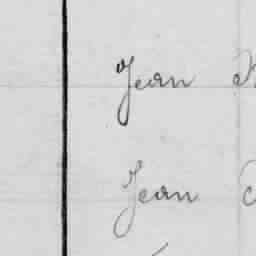 Jean
Jean